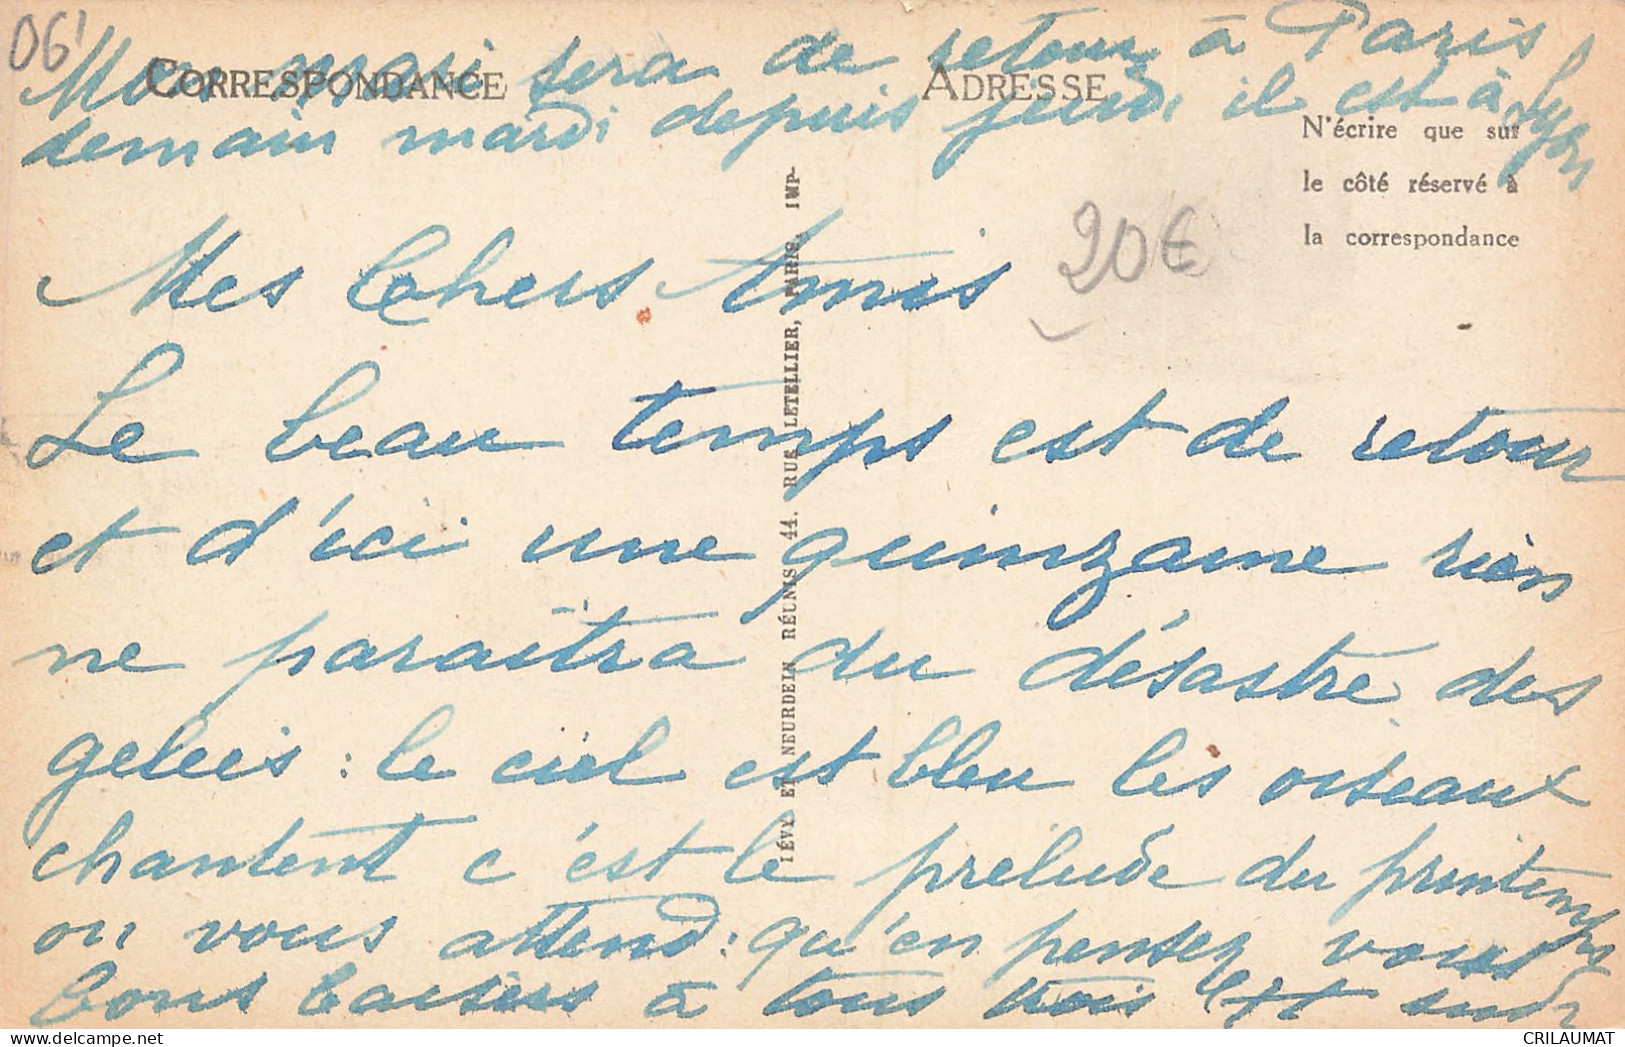 06
Mon mari sera de retour à Paris
CORRESPONDANCE
ADRESSE
demain mardi depuis jeudi il est à Lyon
N'écrire que sur
le côté réservé à
la correspondance
20€
Mes Chers Amis
Le beau temps est de retour
et d'ici une quinzaine rien
ne paraîtra du désastre des
gelées : le ciel est bleu les oiseaux
chantent c'est le prélude du printemps
on vous attend : qu'en pensez vous
bons baisers à tous trois
LÉVY ET NEURDEIN RÉUNIS 44. RUE LETELLIER, PARIS. IMP-
CRILAUMAT